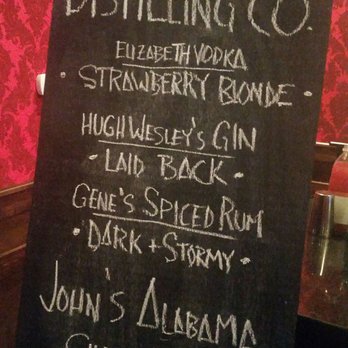 DISTILLING CO.
ELIZABETH VODKA
· STRAWBERRY BLONDE ·
HUGH WESLEY'S GIN
· LAID BACK ·
GENE'S SPICED RUM
· DARK + STORMY ·
JOHN'S ALABAMA